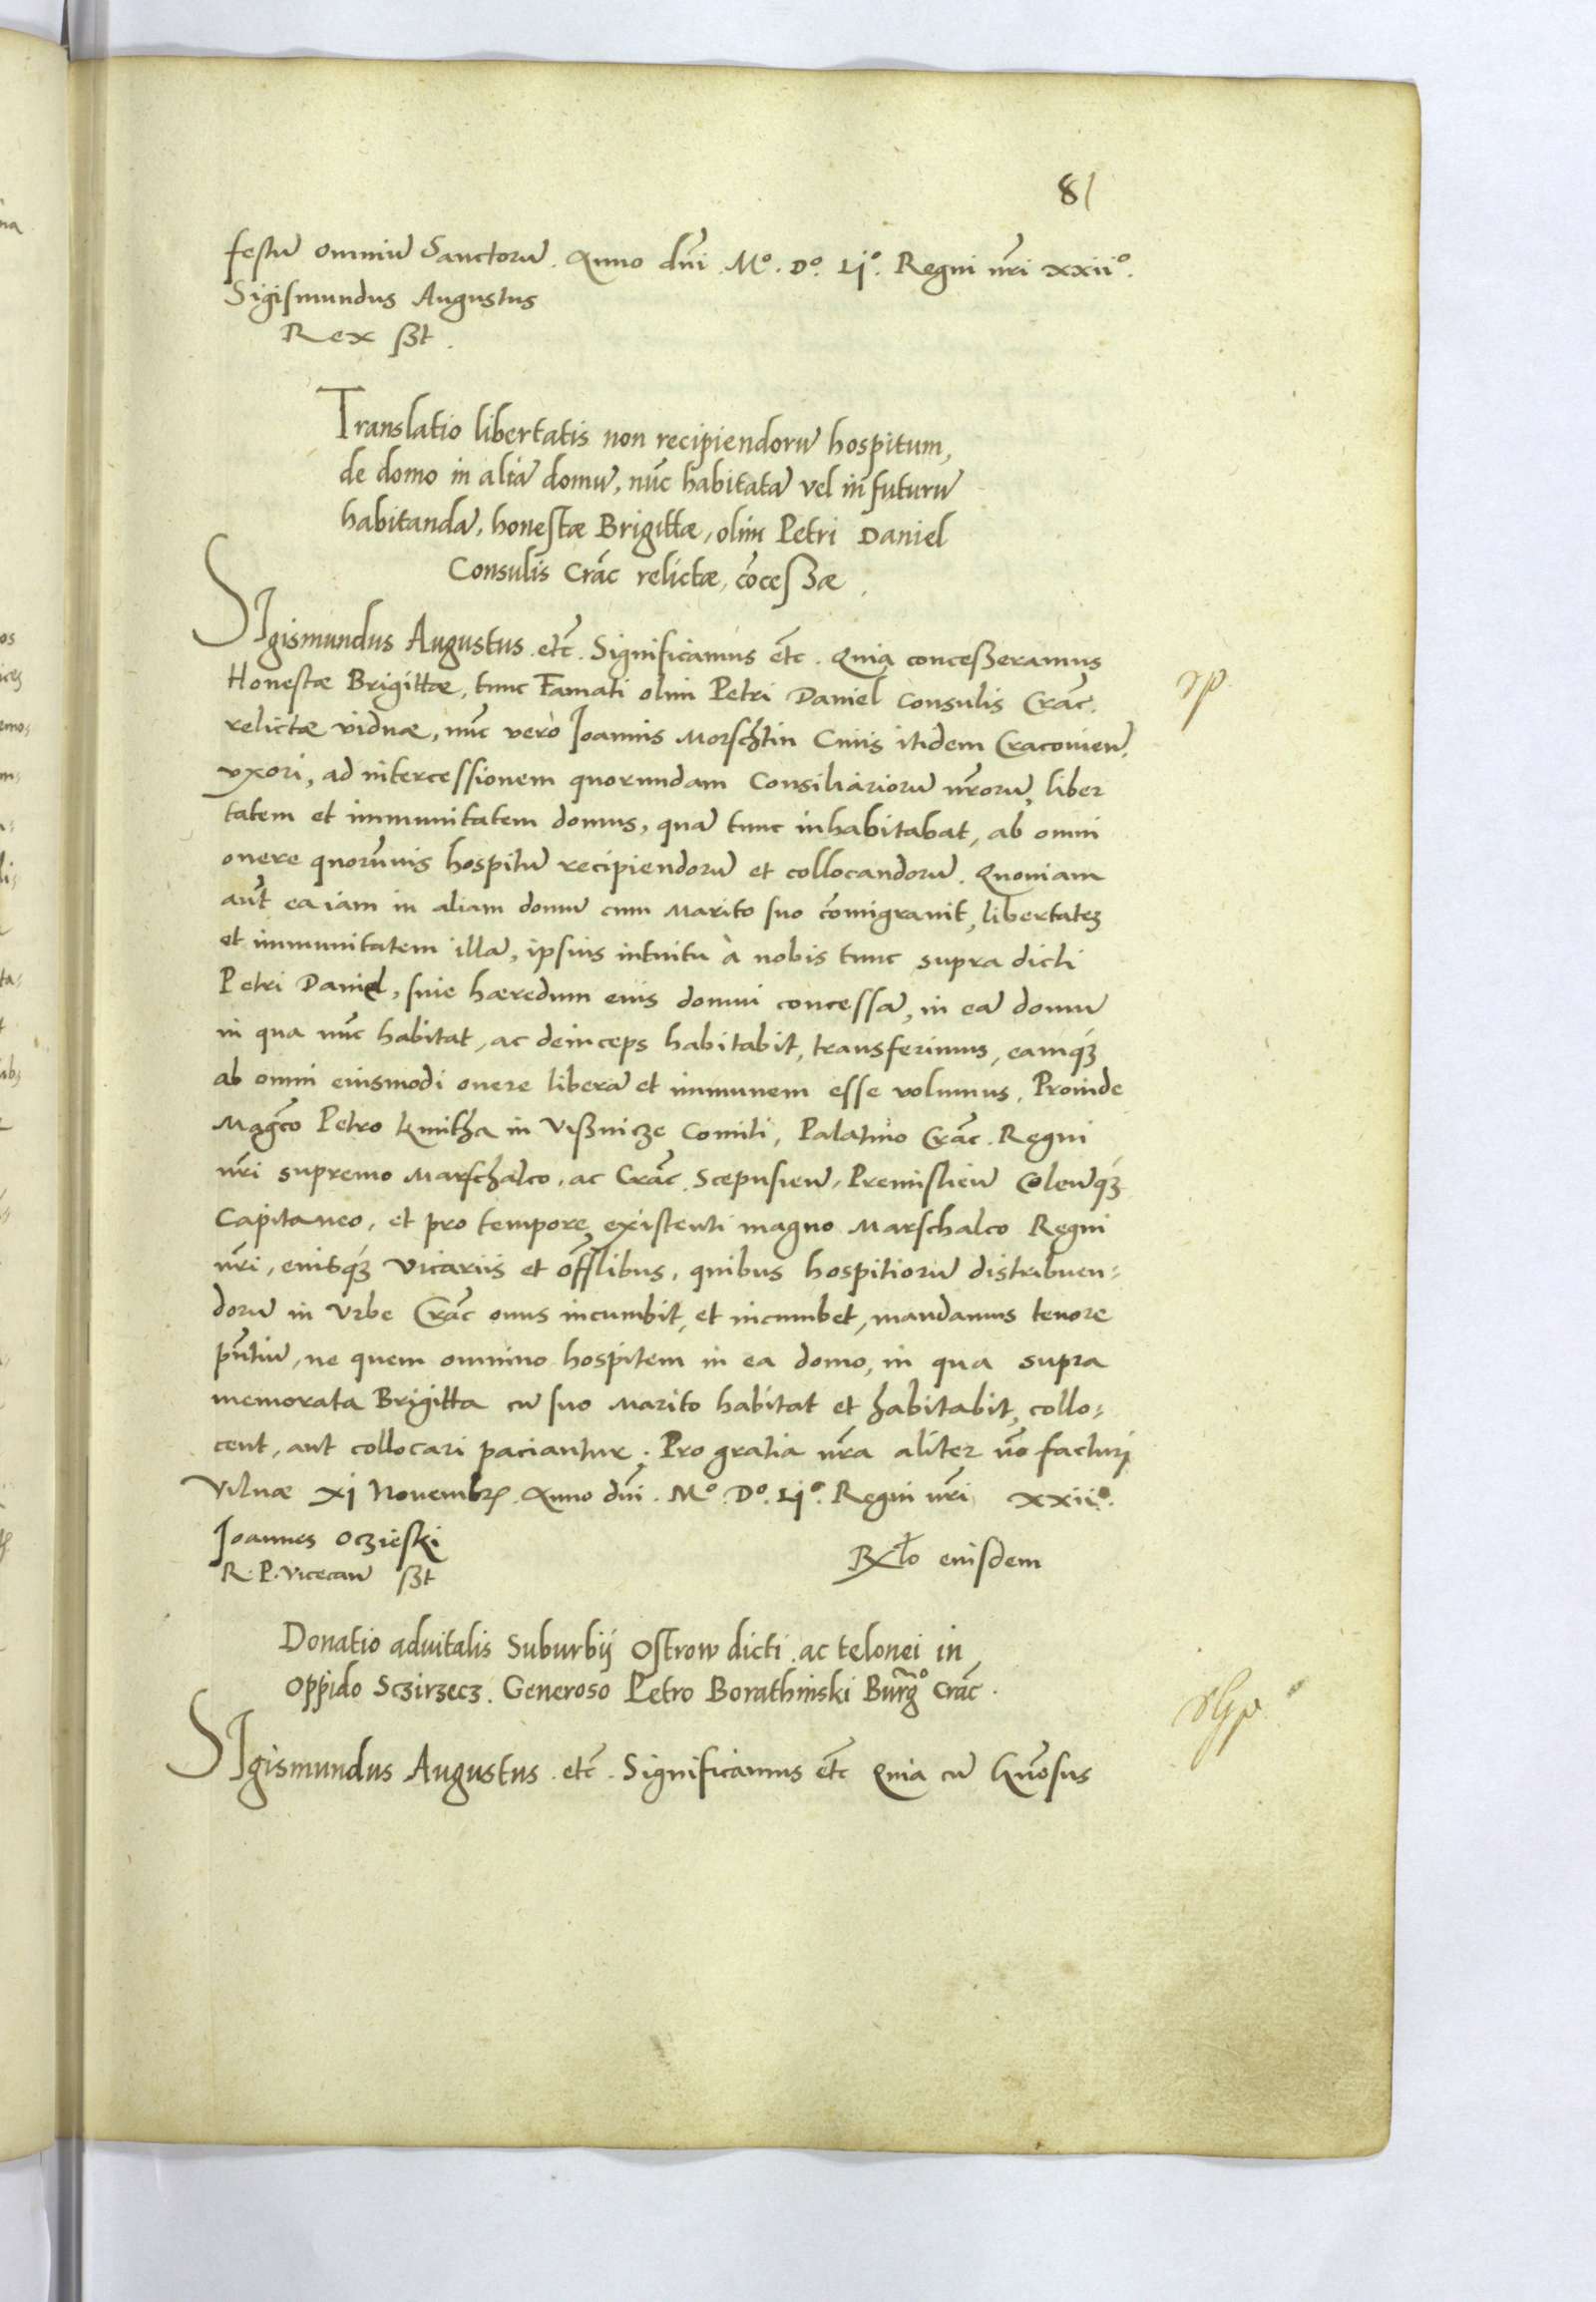 81
festū omniū Sanctorū. Anno dn̄i. M°. D°. Lj°. Regni nr̄i xxii°.
Sigismundus Augustus
Rex sst.
Translatio libertatis non recipiendorū hospitum,
de domo in aliā domū, nūc habitatā vel in futurū
habitandā, honestæ Brigittæ, olim Petri Daniel
Consulis Crāc relictæ, cōcessæ.
SIgismundus Augustus. etc̄. Significamus etc̄. Quia concesseramus
Honestæ Brigittæ, tunc Famati olim Petri Daniel Consulis Crāc.
relictæ viduæ, nūc vero Joannis Morschtin Civis itidem Cracovien̄.
uxori, ad intercessionem quorundam Consiliariorū nr̄orū, liber
tatem et immunitatem domus, quā tunc inhabitabat, ab omni
onere quorūvis hospitū recipiendorū et collocandorū. Quoniam
aūt ea iam in aliam domū cum Marito suo cōmigravit, libertatēꝫ
et immunitatem illā, ipsius intuitu à nobis tunc supra dicti
Petri Daniel, sive hæredum eius domui concessā, in eā domū
in qua nūc habitat, ac deinceps habitabit, transferimus, eamqꝫ
ab omni eiusmodi onere liberā et immunem esse volumus. Proinde
Maḡco Petro Kmitha in Vissnicze Comiti, Palatino Crāc. Regni
nr̄i supremo Marschalco, ac Crāc. Scepusien̄, Premislien̄ Colen̄qꝫ
Capitaneo, et pro tempore existenti magno Marschalco Regni
nr̄i, eiusqꝫ Vicariis et off̄libus, quibus hospitiorū distribuen=
dorū in Urbe Crāc onus incumbit, et incumbet, mandamus tenore
pn̄tiū, ne quem omnino hospitem in ea domo, in qua supra
memorata Brigitta cū suo Marito habitat et habitabit, collo=
cent, aut collocari paciantur. Pro gratia nr̄a aliter nō facturi
Vilnæ xj Novembr̄. Anno dn̄i. M°. D°. Lj°. Regni nr̄i xxii°.
Joannes Oczieski
R. P. Vicecan̄ sst
Rłło eiusdem
Donatio advitalis Suburbij Ostrow dicti. ac telonei in
oppido Sczirzecz. Generoso Petro Borathinski Burḡ° Crāc.
SIgismundus Augustus. etc̄. Significamus etc̄ Quia cū